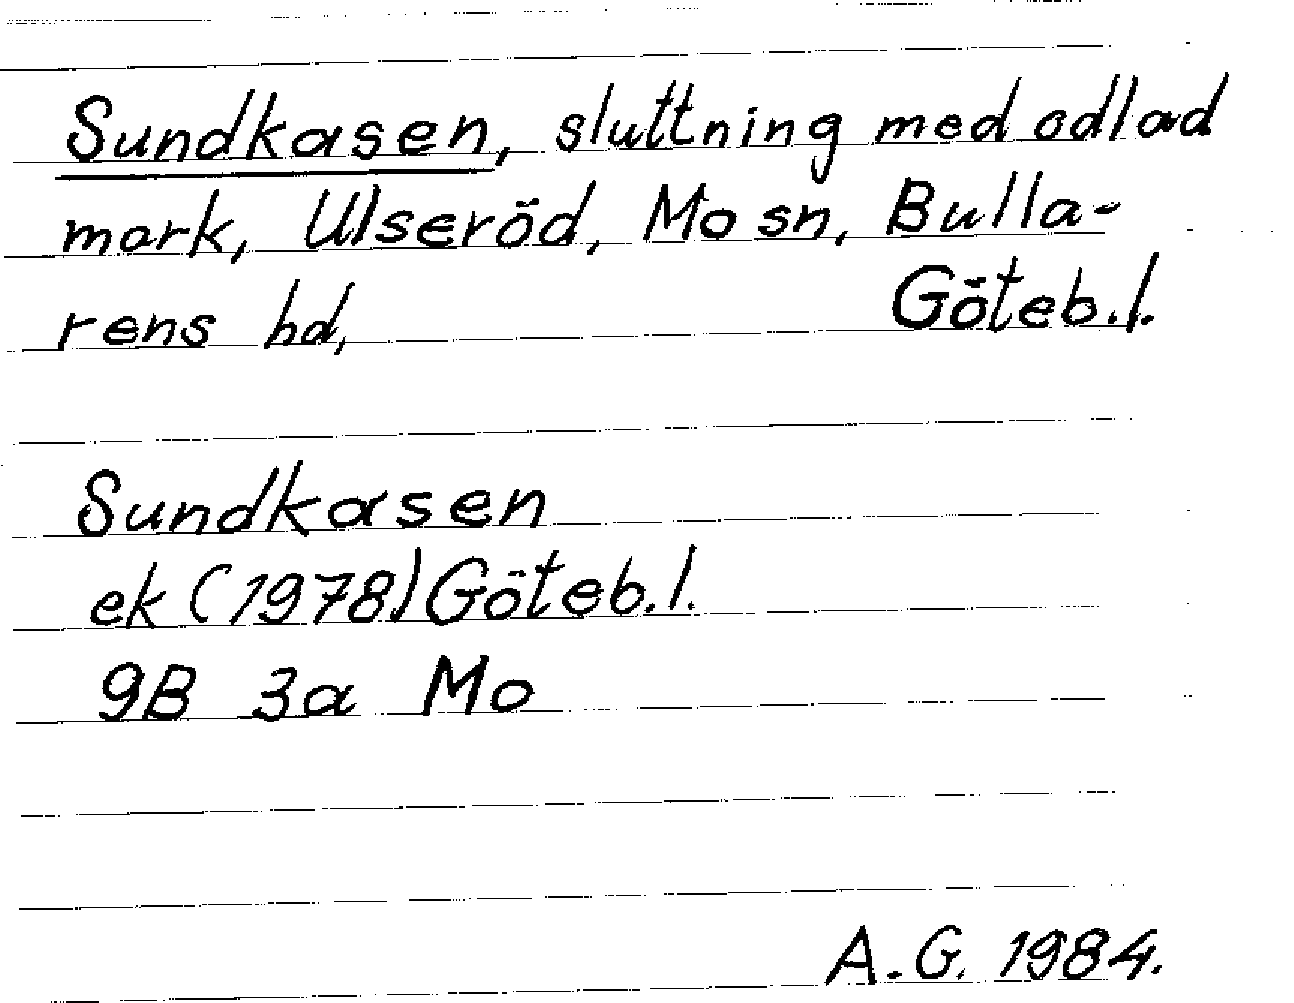 Sundkasen, sluttning med odlad
mark, Ulseröd, Mo sn, Bulla-
rens hd, Göteb.l.
Sundkasen
ek (1978) Göteb.l.
9B 3a Mo
A.G. 1984.